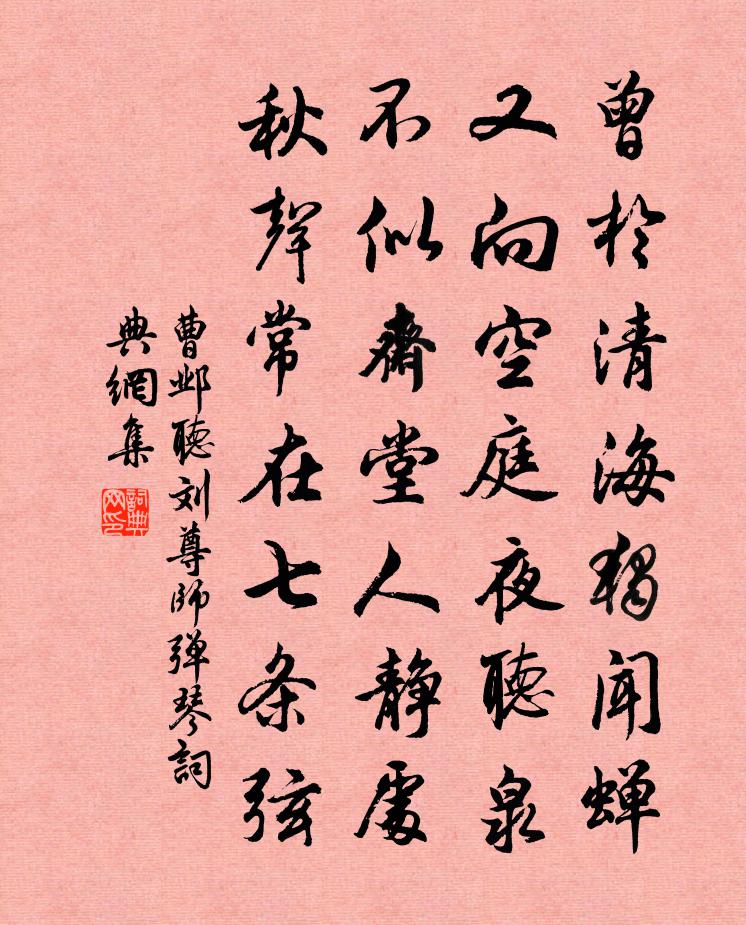 曾於清海獨闻蝉
又向空庭夜聽泉
不似齋堂人靜處
秋聲常在七条弦
曹邺聽刘尊师弹琴詞
典網集
詞典网印